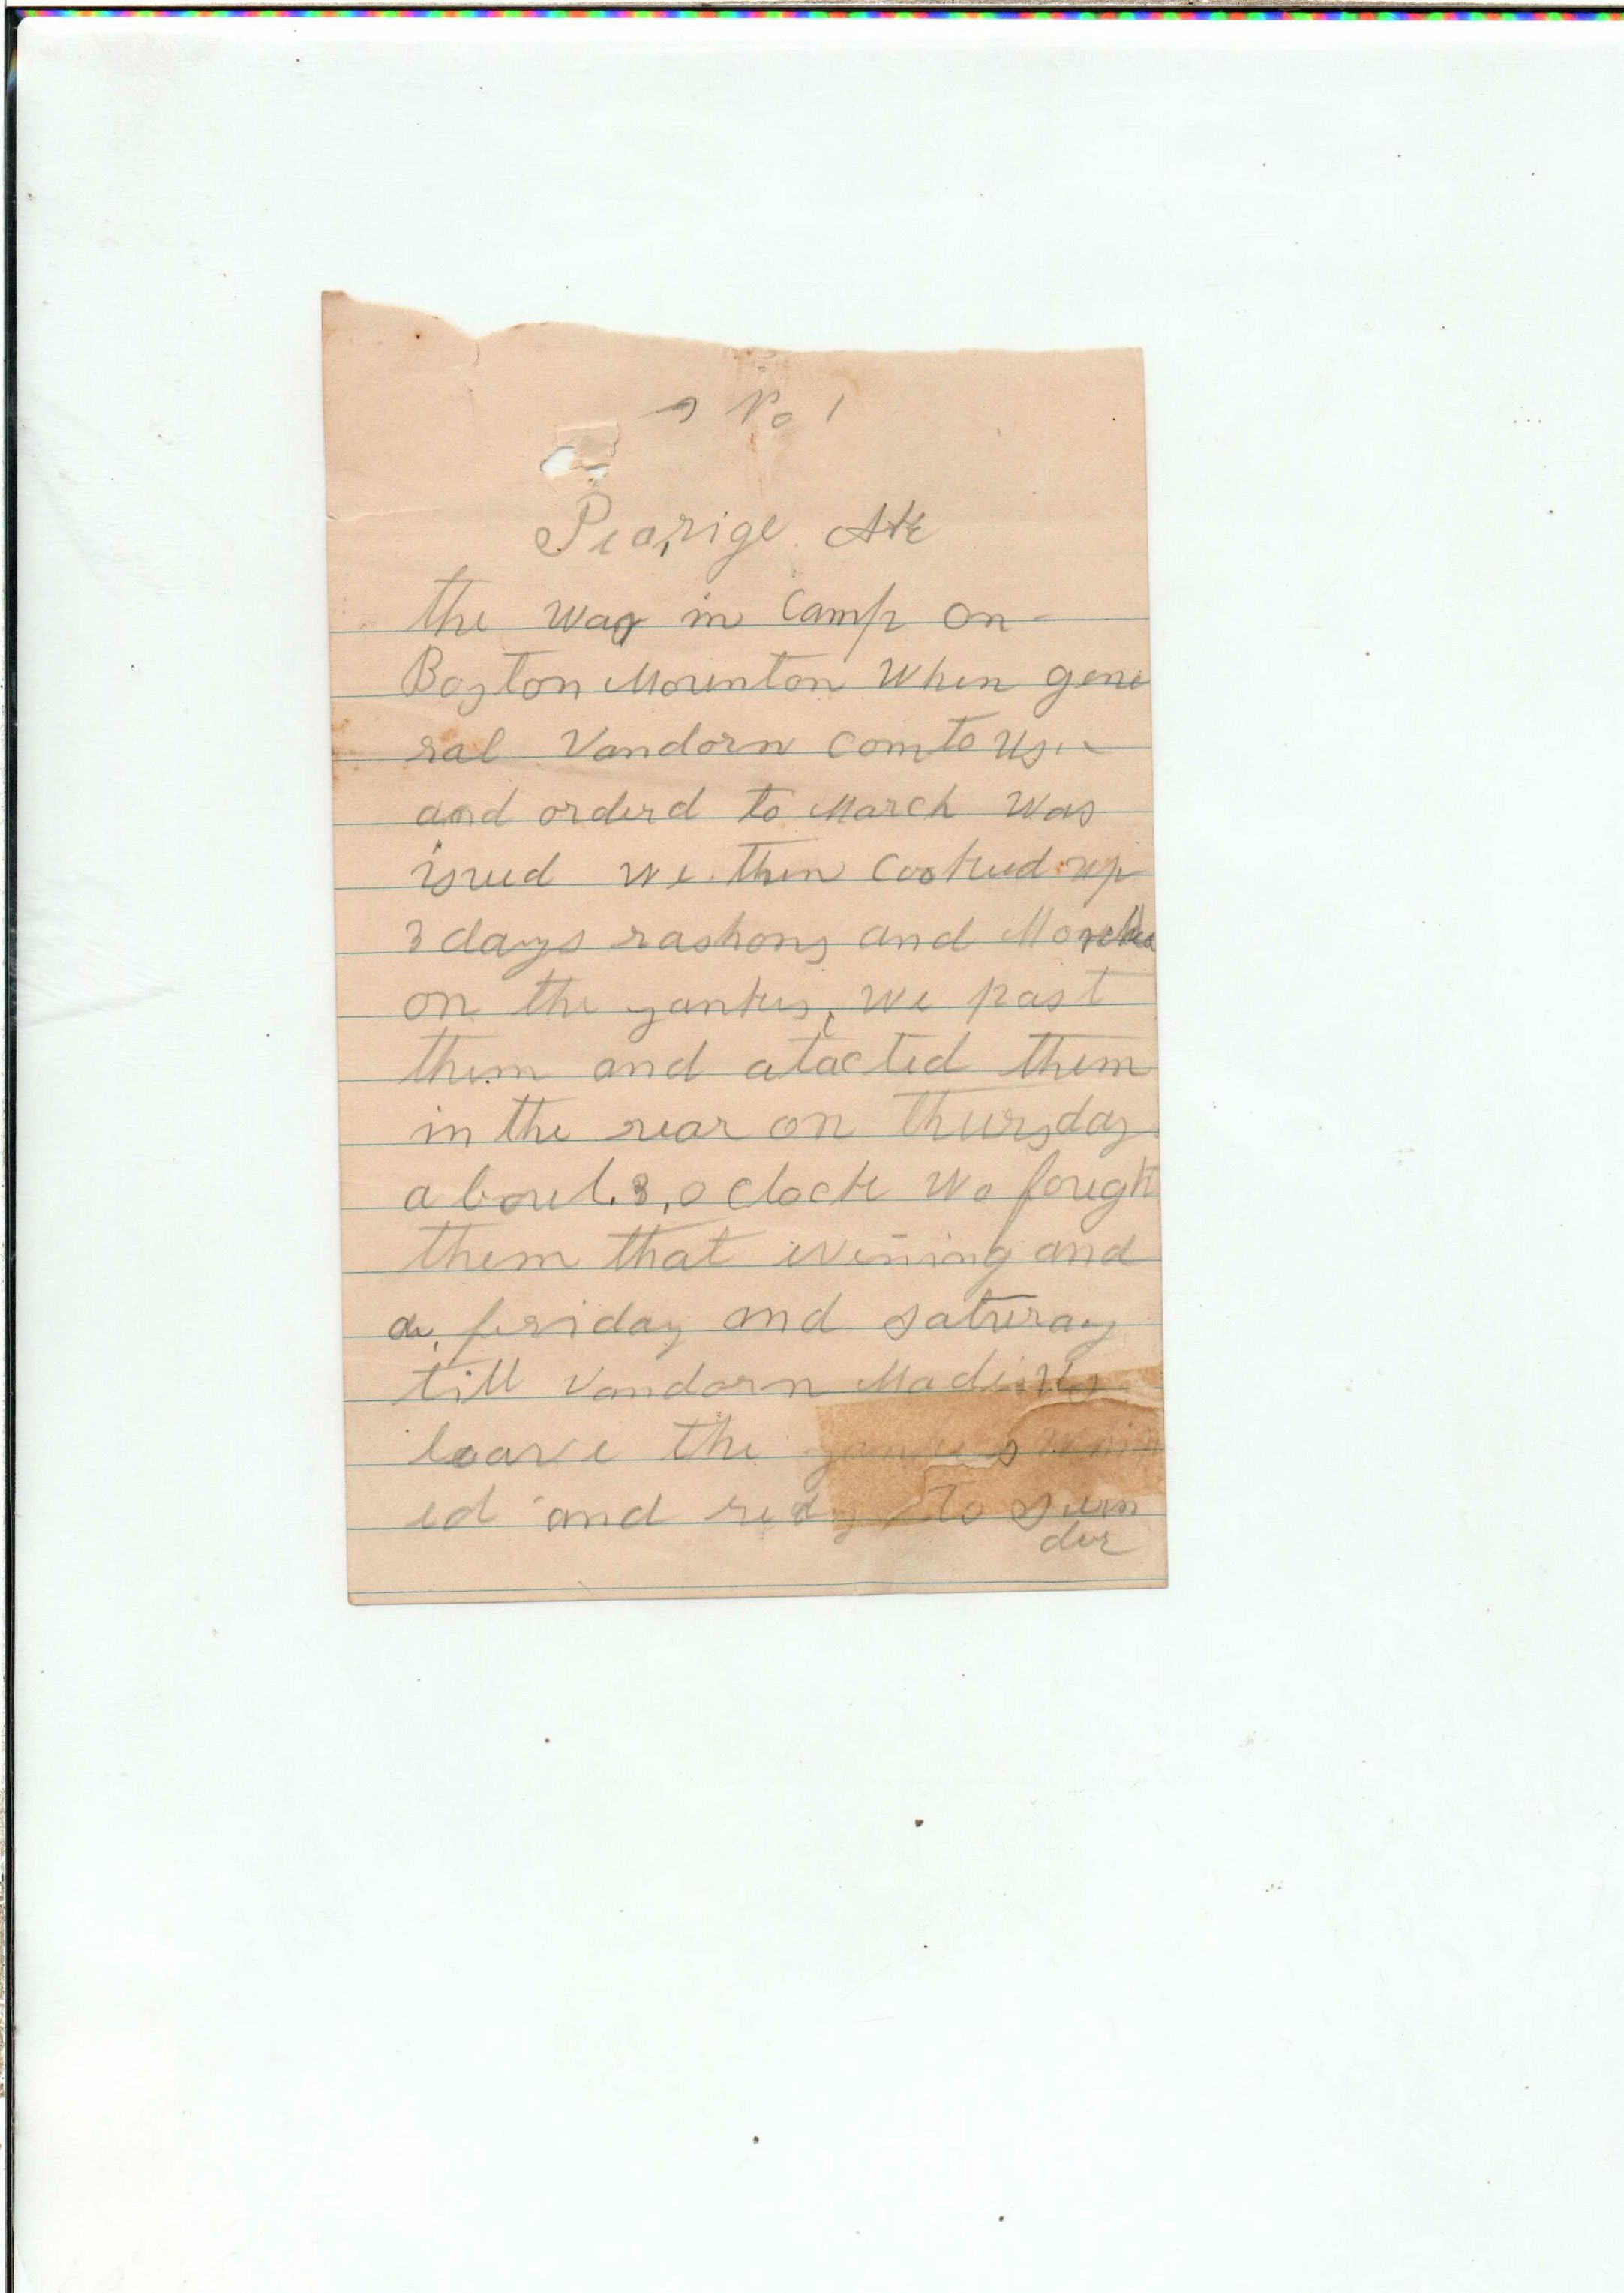 No 1
Pearige Ark
the was in Camp on
Boston Mounton When gene
ral Vandorn com to us
and orderd to March was
isued we then Cooked up
3 days rashons and Marched
on the yankes, we past
them and atacted them
in the rear on thursday
about 3, o clock We fought
them that evening and
friday and saturay
till Vandorn Made us
leave the yankees
ed and redy to surn
der